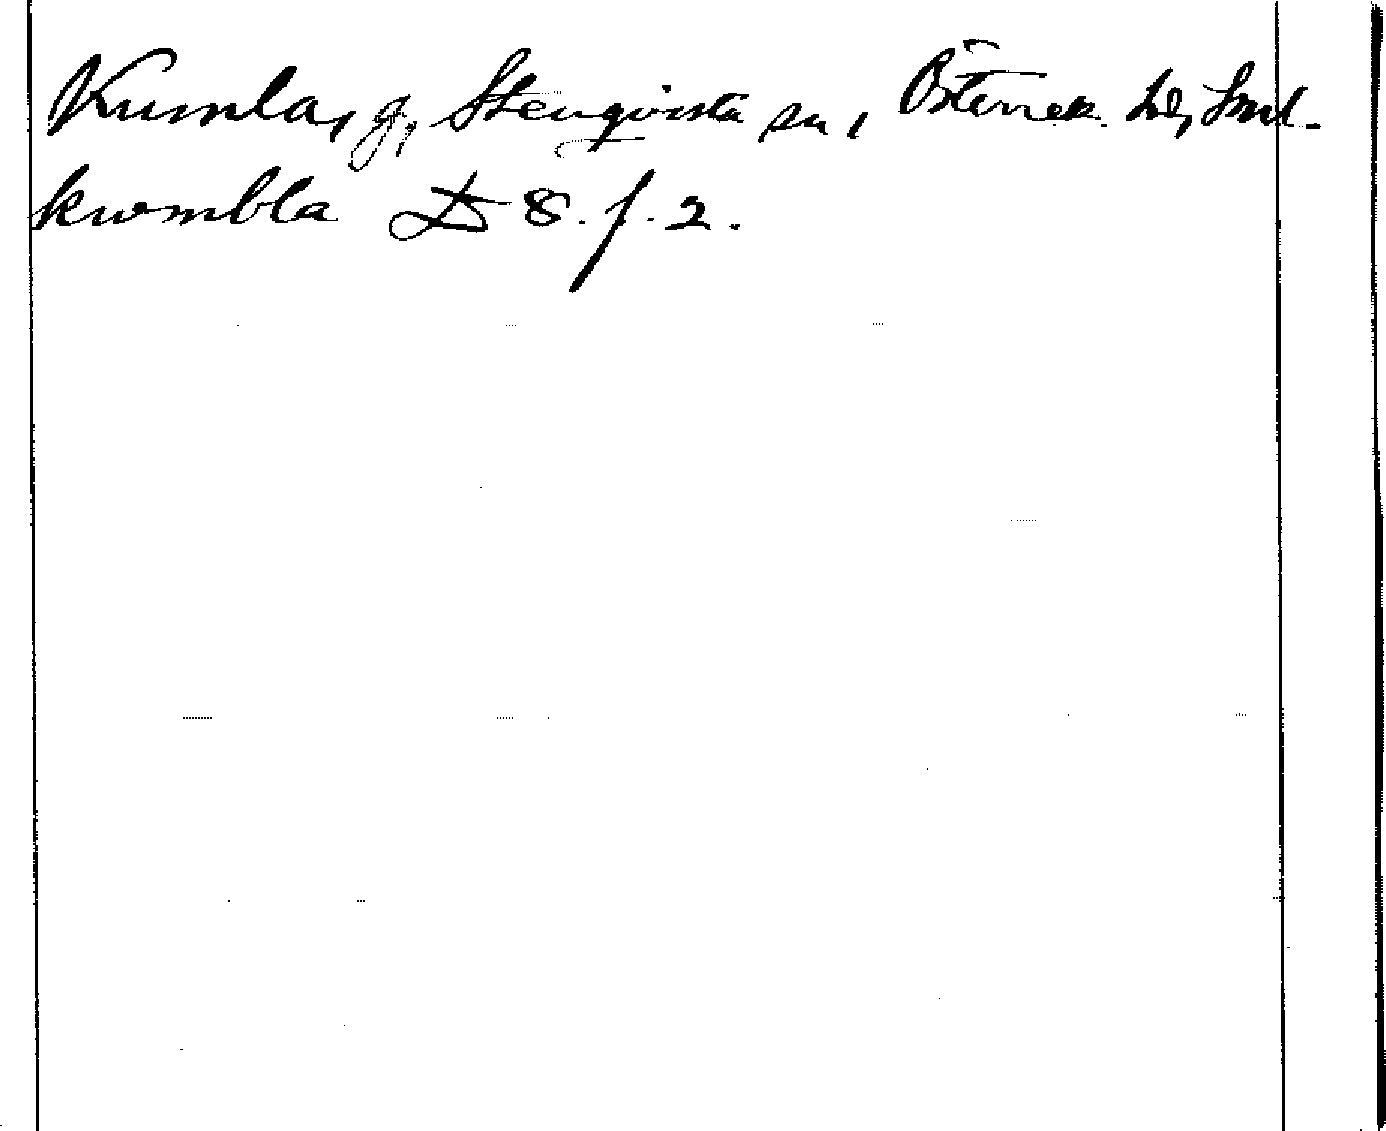 Kumla, g, Stenqvista sn, Österrek. hd, Sml.
kwmbla D 8. f. 2.